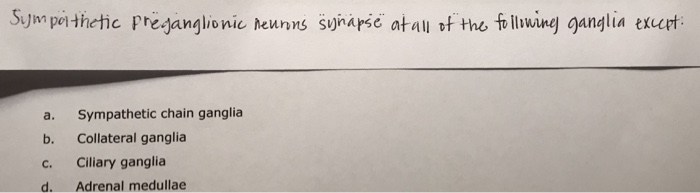 Sympathetic preganglionic neurons synapse at all of the following ganglia except:
a. Sympathetic chain ganglia
b. Collateral ganglia
c. Ciliary ganglia
d. Adrenal medullae